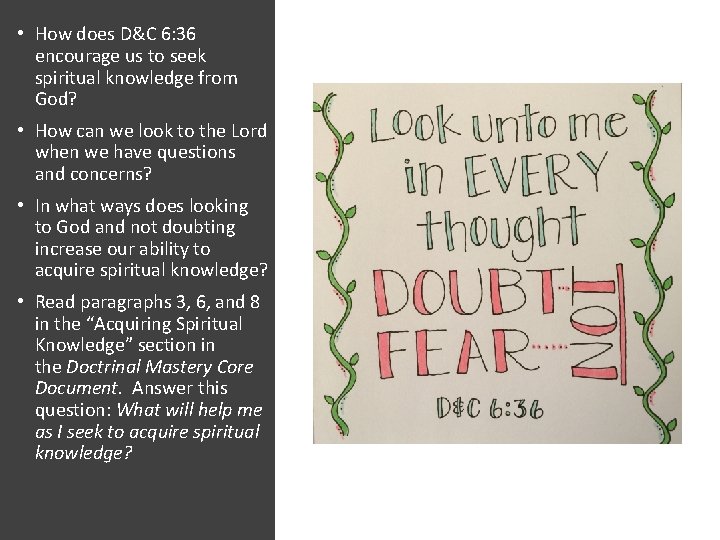 • How does D&C 6: 36
encourage us to seek
spiritual knowledge from
God?
• How can we look to the Lord
when we have questions
and concerns?
• In what ways does looking
to God and not doubting
increase our ability to
acquire spiritual knowledge?
• Read paragraphs 3, 6, and 8
in the “Acquiring Spiritual
Knowledge” section in
the Doctrinal Mastery Core
Document. Answer this
question: What will help me
as I seek to acquire spiritual
knowledge?
Look unto me
in EVERY
thought
DOUBT
FEAR
NOT
D&C 6:36